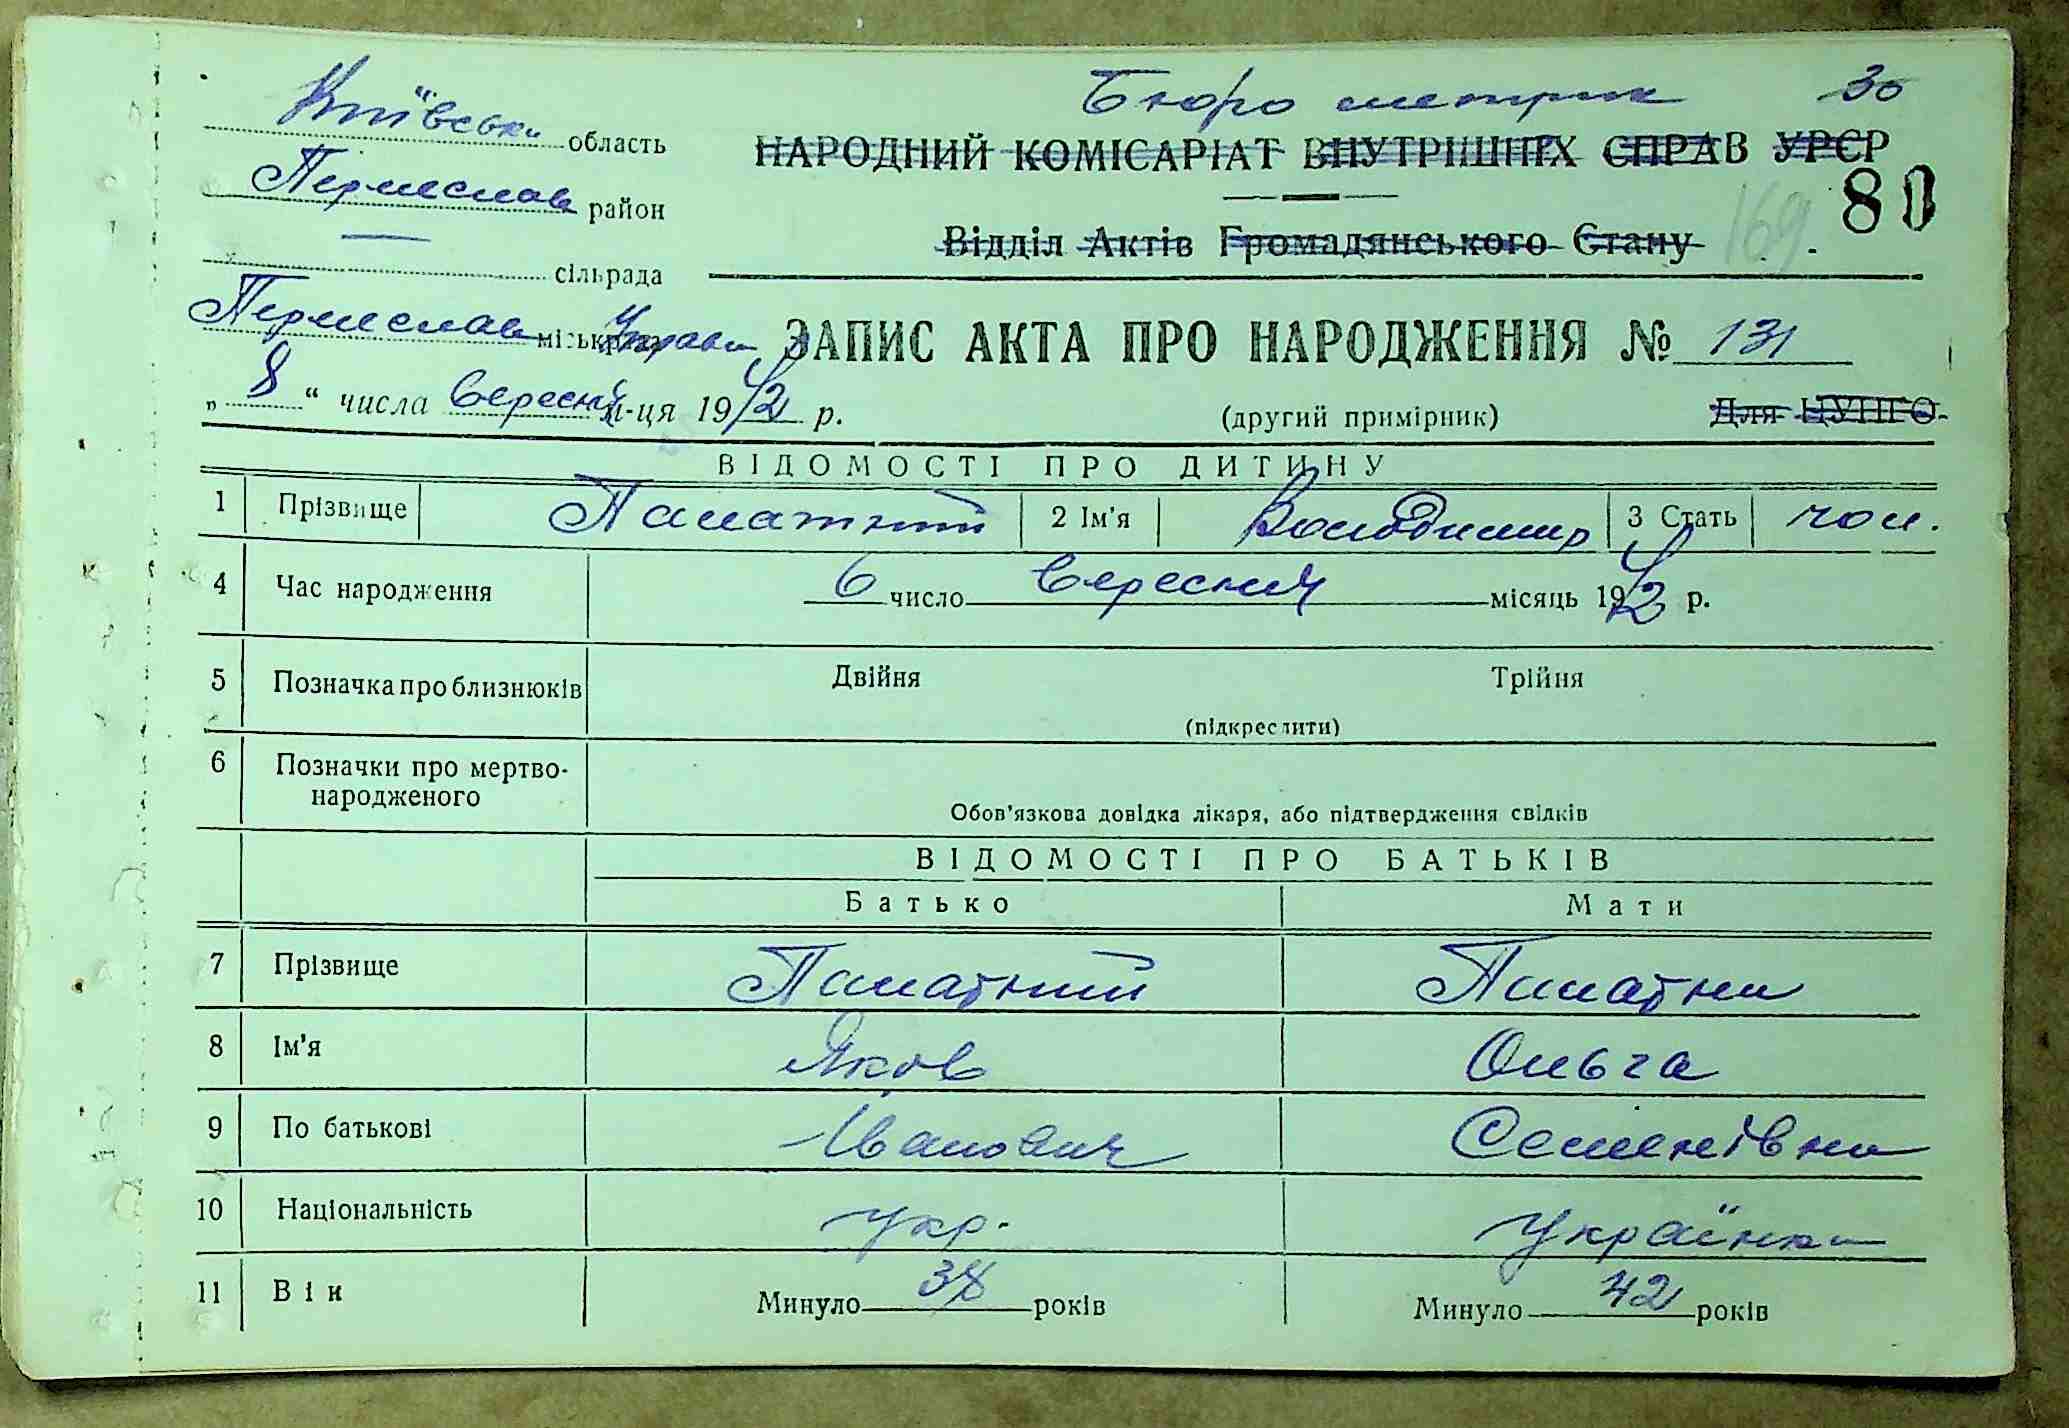 Київська область
Бюро метрик 30
НАРОДНИЙ КОМІСАРІАТ ВНУТРІШНІХ СПРАВ УРСР
район
80
169
Відділ Актів Громадянського Стану
сільрада
Управа
ЗАПИС АКТА ПРО НАРОДЖЕННЯ № 131
„ 8 “ числа вересня м-ця 1942 р.
(другий примірник)
Для ЦУНГО
ВІДОМОСТІ ПРО ДИТИНУ
1 Прізвище Палатний 2 Ім'я Володимир 3 Стать чол.
4 Час народження 6 число вересня місяць 1942 р.
5 Позначка про близнюків Двійня Трійня
(підкреслити)
6 Позначки про мертво-
народженого
Обов'язкова довідка лікаря, або підтвердження свідків
ВІДОМОСТІ ПРО БАТЬКІВ
Батько Мати
7 Прізвище Палатний Палатна
8 Ім'я Яков Ольга
9 По батькові Іванович Семенівна
10 Національність укр. українка
11 Вік Минуло 38 років Минуло 42 років